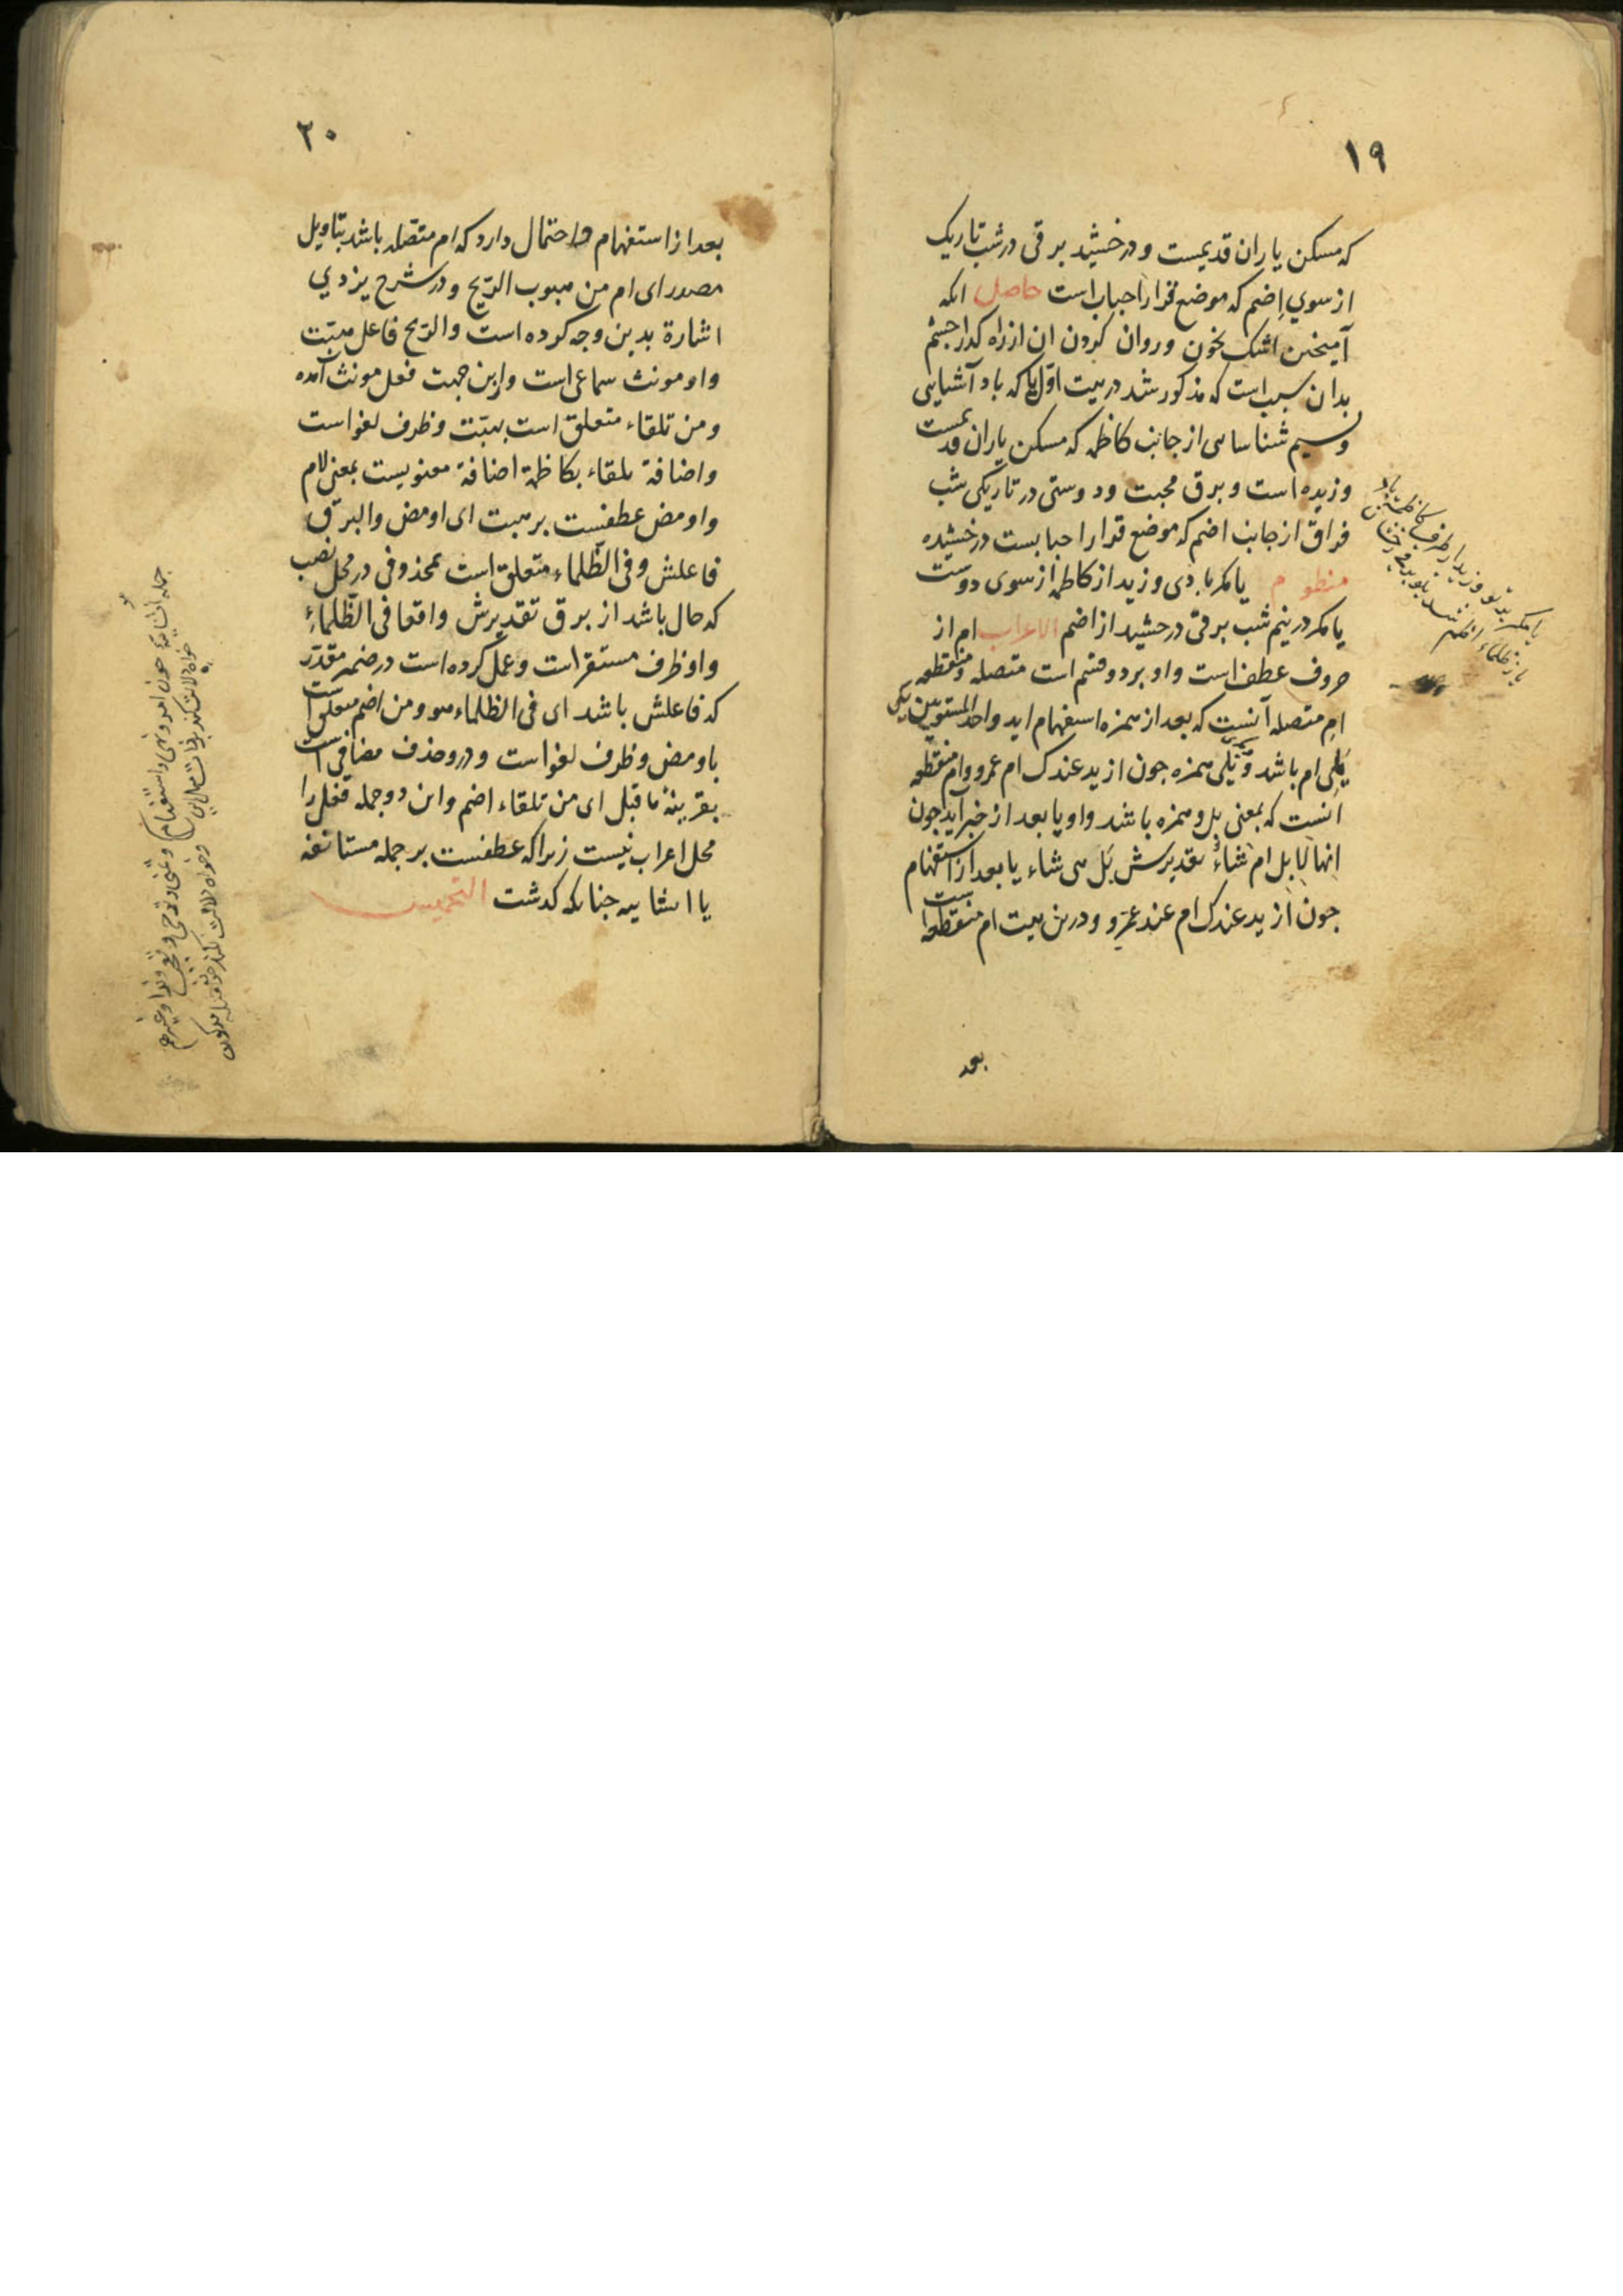 ١٩
که مسکن یاران قدیمست و درخشید برقی در شب تاریک
از سوي اِضم که موضع قرار احباب است حاصل انکه
آمیختن اشک بخون و روان کردن ان از راه کذار جشم
بدان سبب است که مذکور شد در بیت اوّل یا که باد آشنایی
و نسیم شناسایی از جانب کاظمه که مسکن یاران قدیمست
وزیده است و برق محبت و دوستی در تاریکی شب
فراق از جانب اضم که موضع قرار احبابست درخشیده
منظوم یا مکر بادی وزید از کاظمه از سوی دوست
یا مکر در نیم شب برقی درخشید از اضم الاعراب ام از
حروف عطف است و او بر دو قسم است متصله و منقطعه
ام متصله آنست که بعد از همزه استفهام اید و احد المستویین یکی
یَلِی ام باشد و یکی یَلی همزه جون ازید عندک ام عمرو و ام منقطعه
انست که بمعنی بل و همزه باشد و او یا بعد از خبر آید جون
اِنها لَاِبِل ام شاءٌ تقدیرش بَل هی شاء یا بعد از استفهام
جون ازید عندک ام عند عَمرو و درین بیت ام منقطعه است
بعد
یا مکر بدتو وزید از طرف کاظمه باد
یا ز ظلماء اضم شد بتو برق رخشان
٢٠
بعد از استفهام و احتمال دارد که ام متصله باشد بتاویل
مصدر ای ام من هبوب الرّیح و در شرح یزدي
اشارة بدین وجه کرده است و الرّیح فاعل هبّت
و او مونث سماعی است و ازین جهت فعل مونث آمده
و من تلقاء متعلق است بهبّت و ظرف لغو است
و اضافة تلقاء بکاظمة اضافة معنویست بمعنی لام
و اومض عطفست بر هبت ای اومض و البرق
فاعلش و فی الظّلماء متعلق است بمحذوفی در محل نصب
که حال باشد از برق تقدیرش واقعا فی الظّلماءِ
و او ظرف مستقر است و عمل کرده است در ضمیر مقدّر
که فاعلش باشد ای فی الظلماء هو و من اضم متعلق است
باومض و ظرف لغو است و درو حذف مضافی است
بقرینهٔ ما قبل ای من تلقاء اضم و این دو جمله فعل را
محل اعراب نیست زیرا که عطفست بر جمله مستانفه
یا انشاییه جنانکه کدشت التخمیس
جمله انشائیة جون امر و نهی و استفهام و تمنی و ترجی و تعجب و ندا و غیرهم